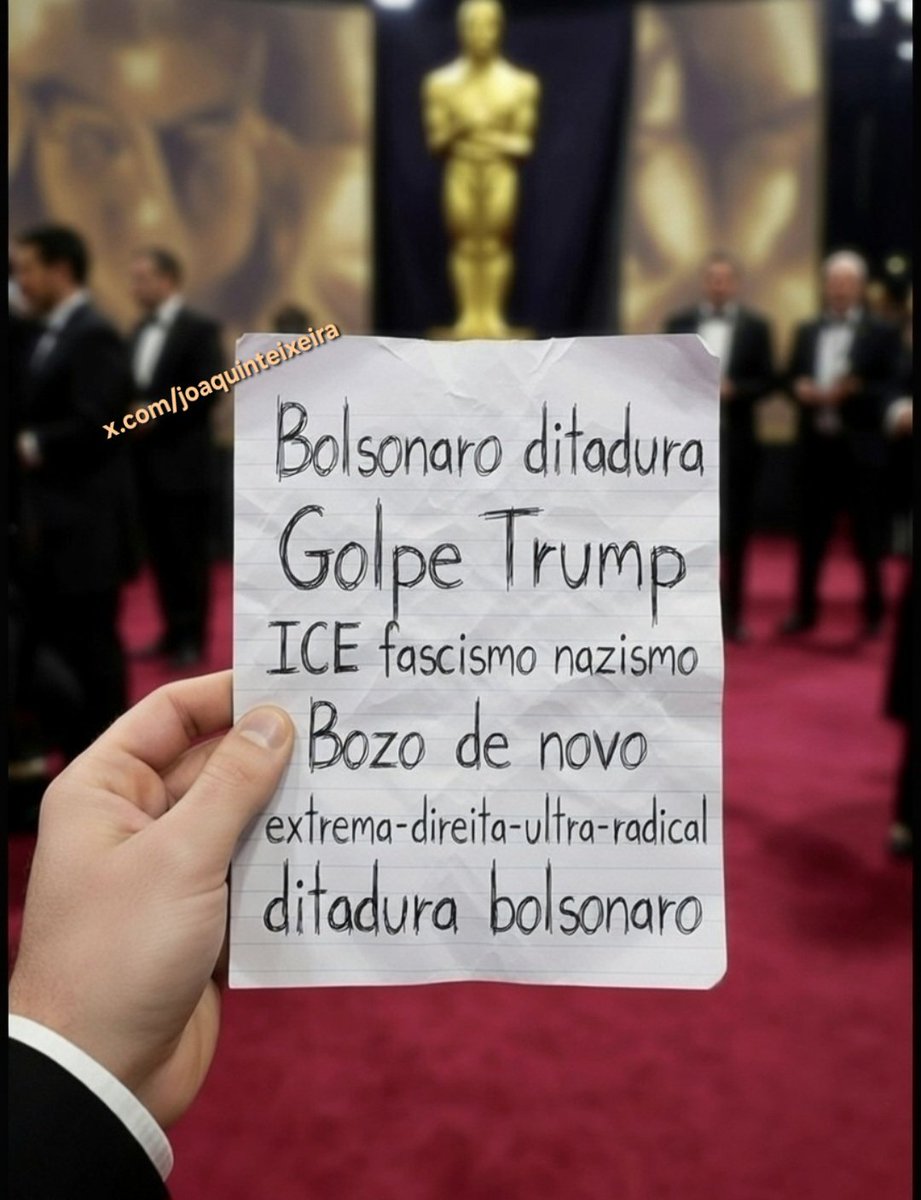 x.com/joaquinteixeira
Bolsonaro ditadura
Golpe Trump
ICE fascismo nazismo
Bozo de novo
extrema-direita-ultra-radical
ditadura bolsonaro